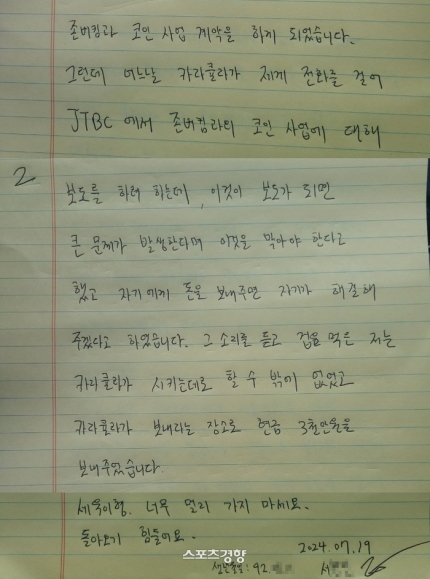 존버킴과 코인 사업 계약을 하게 되었습니다.
그런데 어느날 카라큘라가 제게 전화를 걸어
JTBC 에서 존버킴과의 코인 사업에 대해
2
보도를 하려 하는데, 이것이 보도가 되면
큰 문제가 발생한다며 이것을 막아야 한다고
했고 자기에게 돈을 보내주면 자기가 해결해
주겠다고 하였습니다. 그 소리를 듣고 겁을 먹은 저는
카라큘라가 시키는데로 할 수 밖에 없었고
카라큘라가 보내라는 장소로 현금 3천만원을
보내주었습니다.
세욱이형. 너무 멀리 가지 마세요.
돌아오기 힘들어요.
2024.07.19
스포츠경향
생년월일: 92.
서